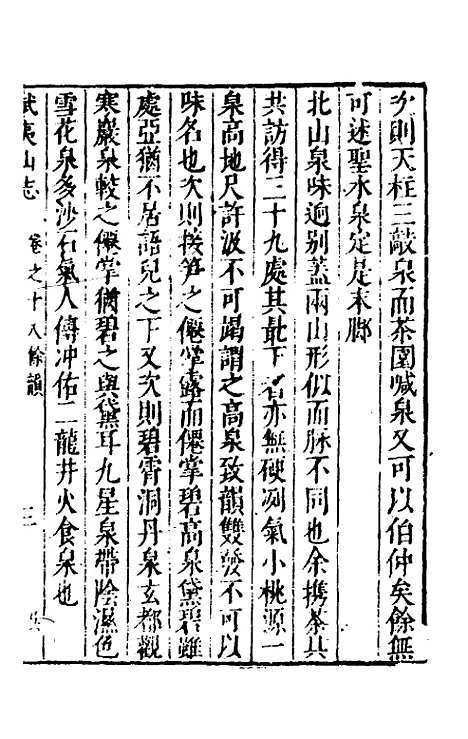 次則天柱三敲泉而茶園喊泉又可以伯仲矣餘無
可述聖水泉定是末脚
北山泉味逈别蓋兩山形似而脉不同也余攜茶具
共訪得三十九處其最下者亦無硬冽氣小桃源一
泉高地尺許汲不可竭謂之高泉致韻雙發不可以
味名也次則接笋之僊掌露而僊掌碧高泉黛碧雖
處亞猶不居語兒之下又次則碧霄洞丹泉玄都觀
寒巖泉較之僊掌猶碧之與黛耳九星泉帶陰濕色
雪花泉多沙石氣人傳冲佑二龍井火食泉也
武夷山志
卷之十八餘韻
三